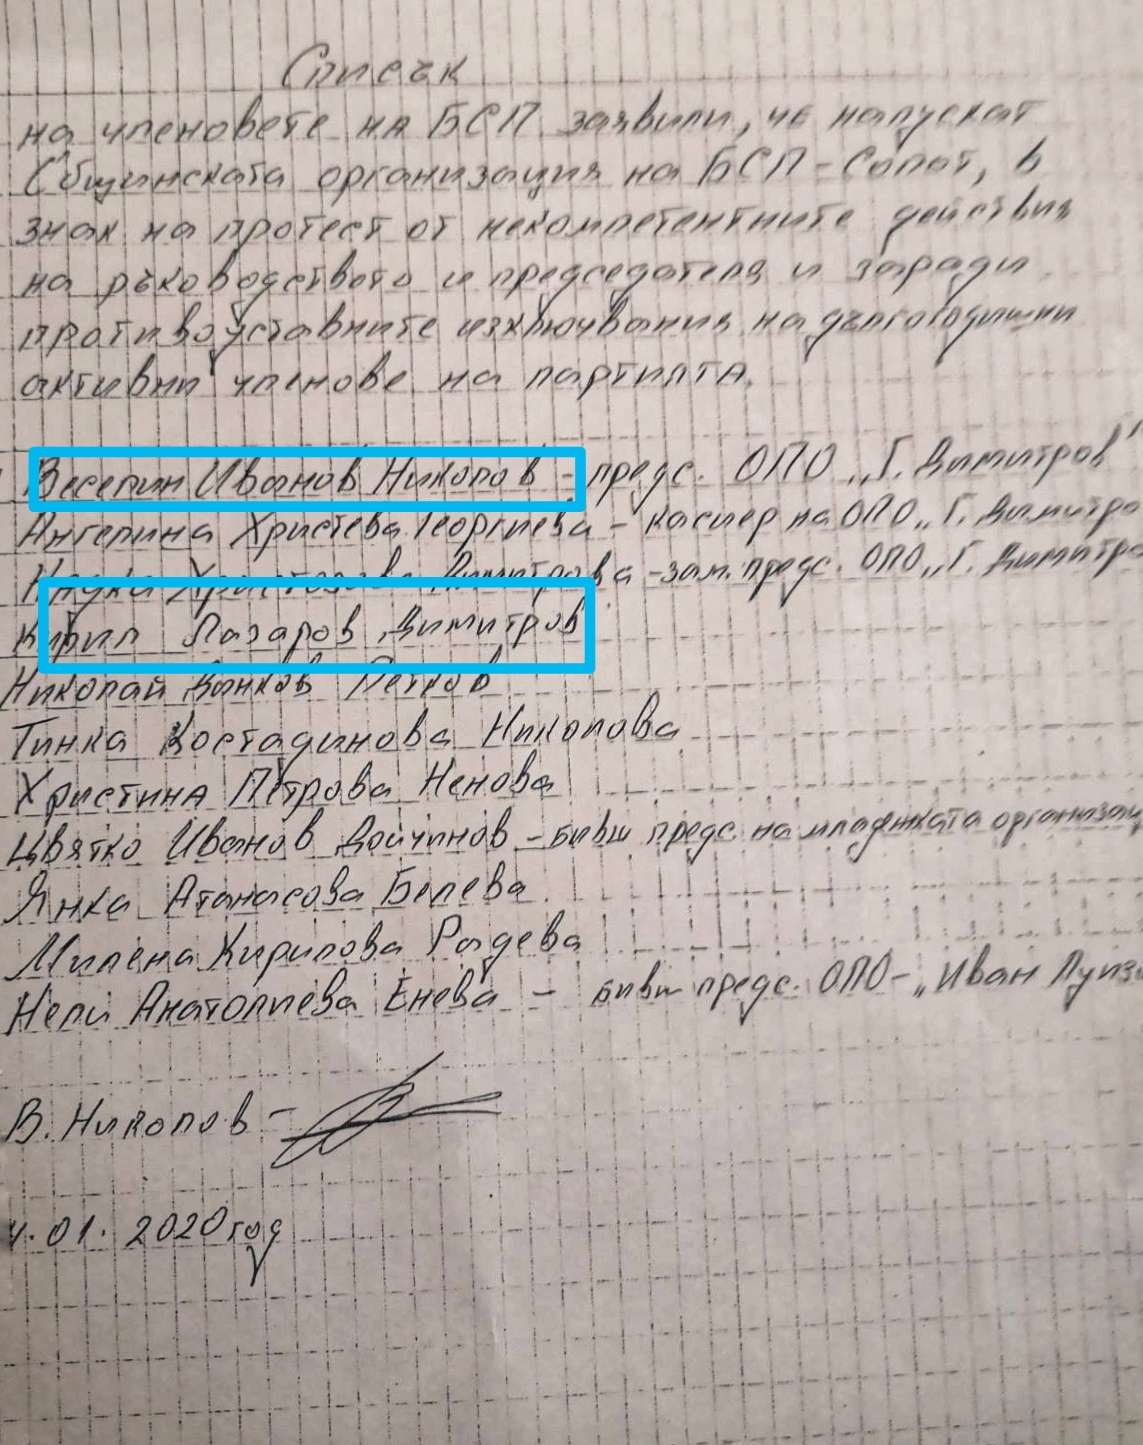 Списък
на членовете на БСП заявили, че напускат
Общинската организация на БСП - Сопот, в
знак на протест от некомпетентните действия
на ръководството и председателя и заради
противоуставните изключвания на дългогодишни
активни членове на партията.
Веселин Иванов Николов - предс. ОПО „Г. Димитров"
Ангелина Христева Георгиева - касиер на ОПО „Г. Димитро
Димитрова - зам. предс. ОПО „Г. Димитро
Кирил Лазаров Димитров
Николай Вънков Петков
Тинка Костадинова Николова
Христина Петрова Ненова
Цвятко Иванов Дойчинов - бивш предс. на младежката организац
Янка Атанасова Белева
Милена Кирилова Радева
Нели Анатолиева Енева - бивш предс. ОПО - „Иван Лунз
В. Николов -
4.01.2020 год